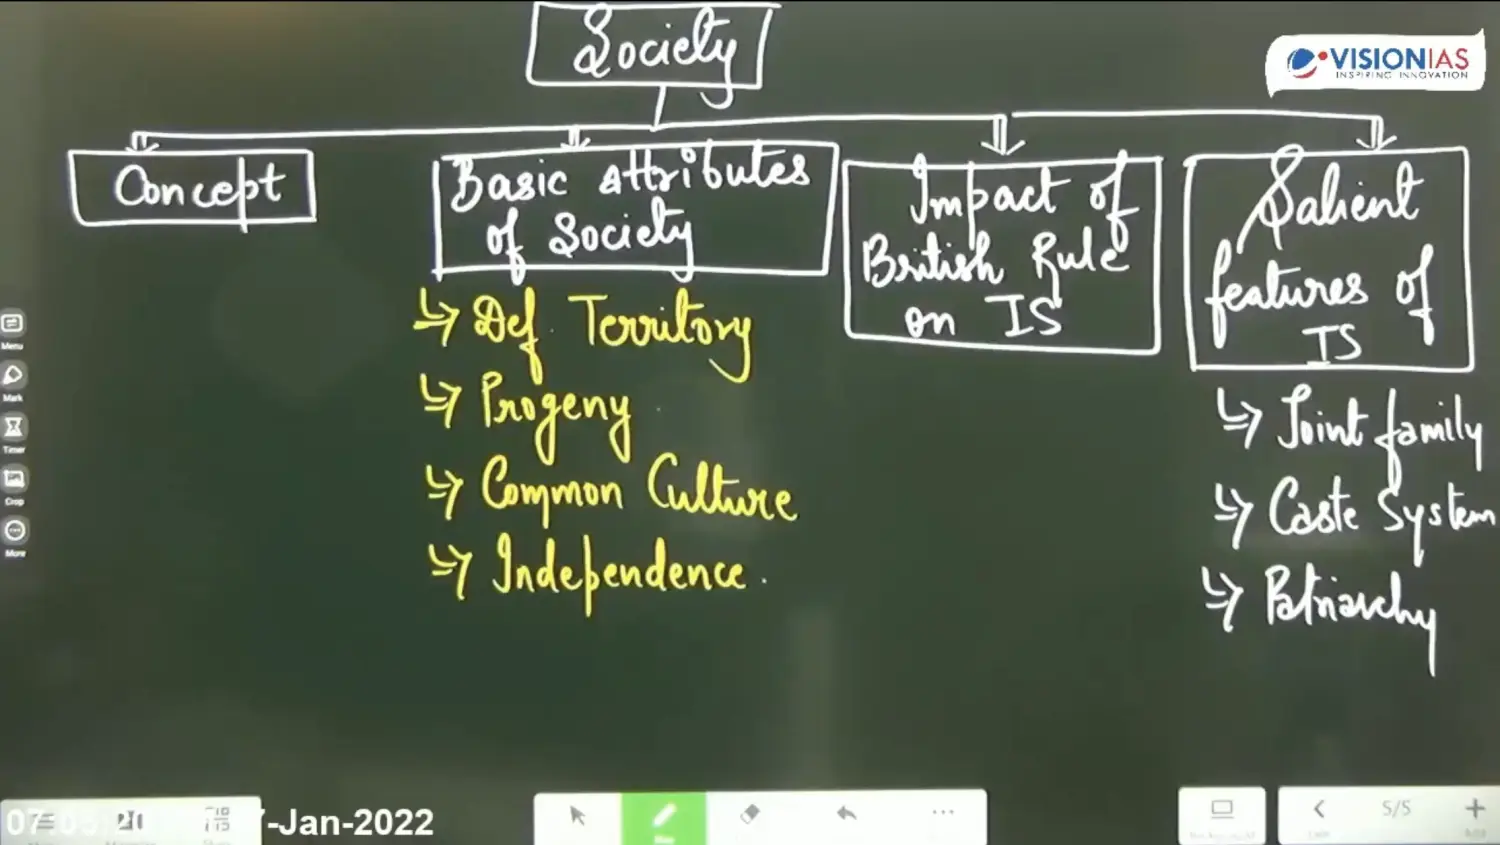 Society
VISIONIAS
INSPIRING INNOVATION
Concept
Basic attributes
of Society
Impact of
British Rule
on IS
Salient
features of
IS
Def. Territory
Progeny
Common Culture
Independence.
Joint family
Caste System
Patriarchy
Menu
Mark
Timer
Crop
More
-Jan-2022
5/5